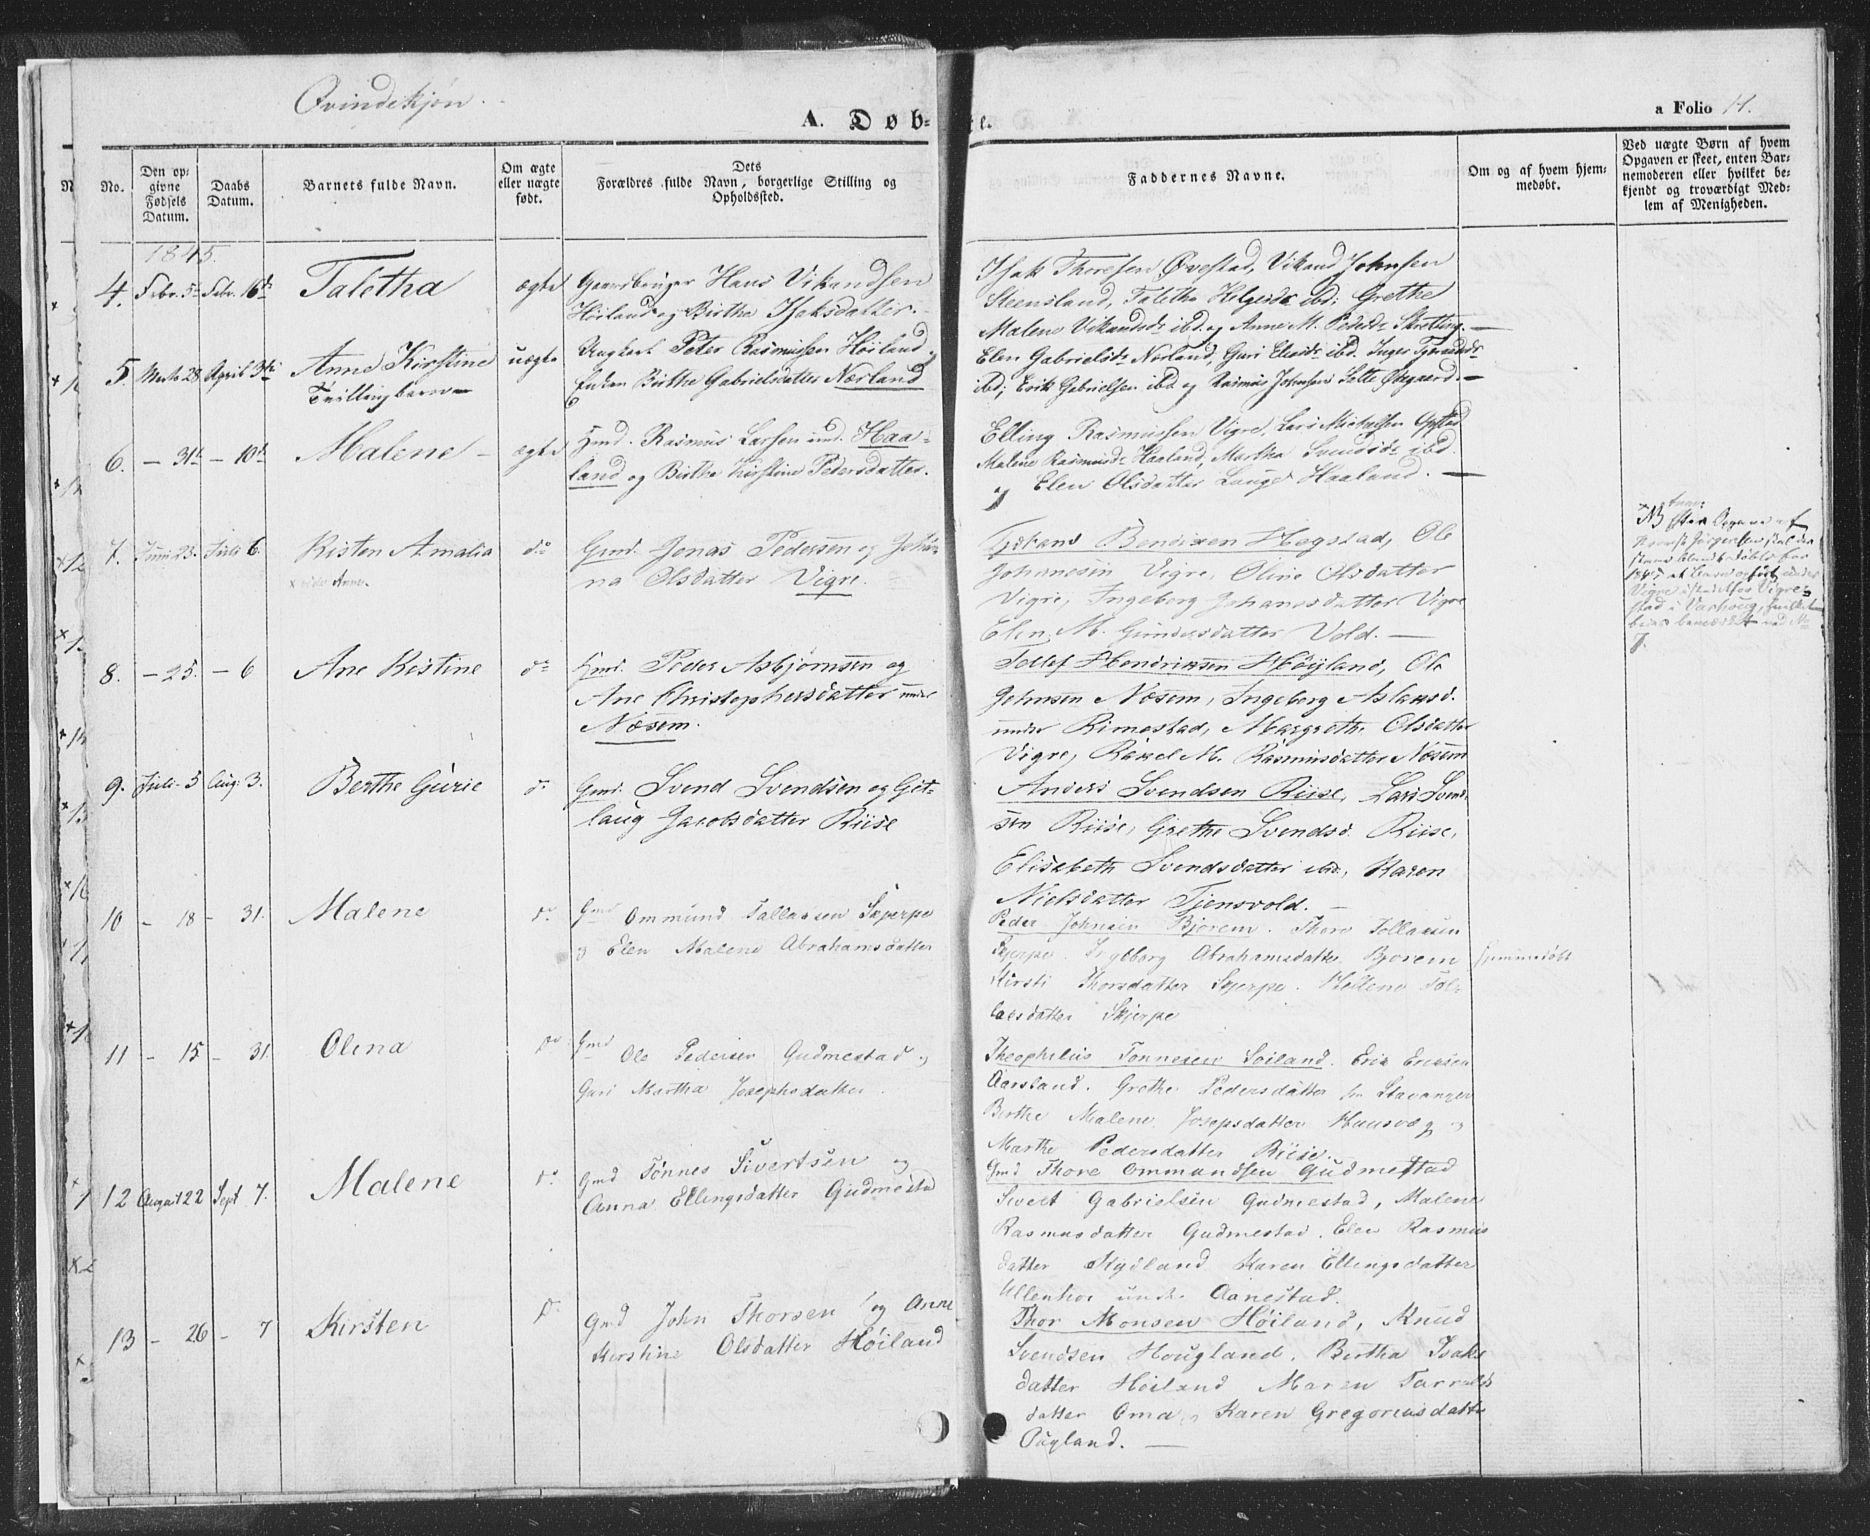 Qvindekjøn.
A. Døbte.
a Folio 11.
No.
Den opgivne Fødsels Datum.
Daabs Datum.
Barnets fulde Navn.
Om ægte eller uægte født.
Dets Forældres fulde Navn, borgerlige Stilling og Opholdssted.
Faddernes Navne.
Om og af hvem hjemmedøbt.
Ved uægte Børn af hvem Opgaven er skeet, enten Barnemoderen eller hvilket bekjendt og troværdigt Medlem af Menigheden.
1845.
4. Febr. 5te Febr. 16de Taletha ægte Gaardbruger Hans Vikandsen
Høiland og Birthe Isaksdatter.
Isak Thoresen Øvestad, Vikand Johnsen
Steensland, Taletha Helgesdr ibd; Grethe
Malene Vikandsdr ibd og Anne M. Pedersdr Skretting. —
5. Marts 28 April 3die Anne Kirstine uægte Ungkarl Peter Rasmussen Høiland og
Tvillingbarn Enken Birthe Gabrielsdatter Nærland
Elen Gabrielsdr Nærland, Guri Elisdr ibd. Inger
ibd; Erik Gabrielsen ibd og Rasmus Johnsen Lille Øxgaard. —
6. — 31te — 10de Malene — ægte Hmd. Rasmus Larsen und. Haa-
land og Birthe Kirstine Pedersdatter.
Elling Rasmussen Vigre, Lars Michelsen Opstad
Malene Rasmusdr Haaland, Martha Svendsdr ibd.
og Elen Olsdatter Lauge Haaland. —
7. Juni 23. Juli 6. Kisten Amalia do Gmd. Jonas Pedersen og Johan-
na Olsdatter Vigre.
Bendixen Hegstad, Ole
Johanesen Vigre, Oline Olsdatter
Vigre, Ingeborg Johanesdatter Vigre
Elen M. Gundersdatter Vold. —
8. — 25. — 6 Ane Kistine do Hmd. Peder Asbjørnsen og
Ane Christophersdatter under
Næsem.
Tollef Hendriksen Høyland, Ole
Johnsen Næsem, Ingeborg Aslaksd.
under Rimestad, Margrethe Olsdatter
Vigre, Rakel M. Rasmusdatter Næsem
9. Juli 5 Aug. 3. Berthe Gurie do Gmd. Svend Svendsen og Git-
laug Jacobsdatter Riise
Anders Svendsen Riise, Lars Svend-
sen Riise, Grethe Svendsd. Riise,
Elisabeth Svendsdatter ibd, Karen
Nielsdatter Tjensvold. —
10 — 18 — 31. Malene do Gmd Ommund Tallaksen Skjerpe
og Elen Malene Abrahamsdatter
Peder Johnsen Bjorem. Thore Tollaksen
Skjerpe. Ingeborg Abrahamsdatter Bjorem hjemmedøbt
Kirsti Thorsdatter Skjerpe. Hellene Tol-
laksdatter Skjerpe
11 — 15 — 31. Olena do Gmd Ole Pedersen Gudmestad og
Guri Martha Josephsdatter.
Theophilus Tønnesen Soiland. Erik Ericsen
Aarsland. Grethe Pedersdatter fra Stavanger
Berthe Malene Josepsdatter Hausvæg og
Marthe Pedersdatter Riise.
12 August 22 Sept 7. Malene do Gmd Tønnes Sivertsen og
Anna Ellingsdatter Gudmestad
Gmd Thore Ommundsen Gudmestad
Sivert Gabrielsen Gudmestad, Malene
Rasmusdatter Gudmestad. Elen Rasmus
datter Nyland Karen Ellingsdatter
Ullenhoe under Aanestad.
13 — 26 — 7 Kirsten do Gmd John Thorsen og Anne
Kerstine Olsdatter Høiland
Thor Monsen Høiland, Knud
Svendsen Hougland. Bertha Isaks
datter Høiland Maren Tarralds
datter Oma og Karen Gregoriusdatter
Røgland. —